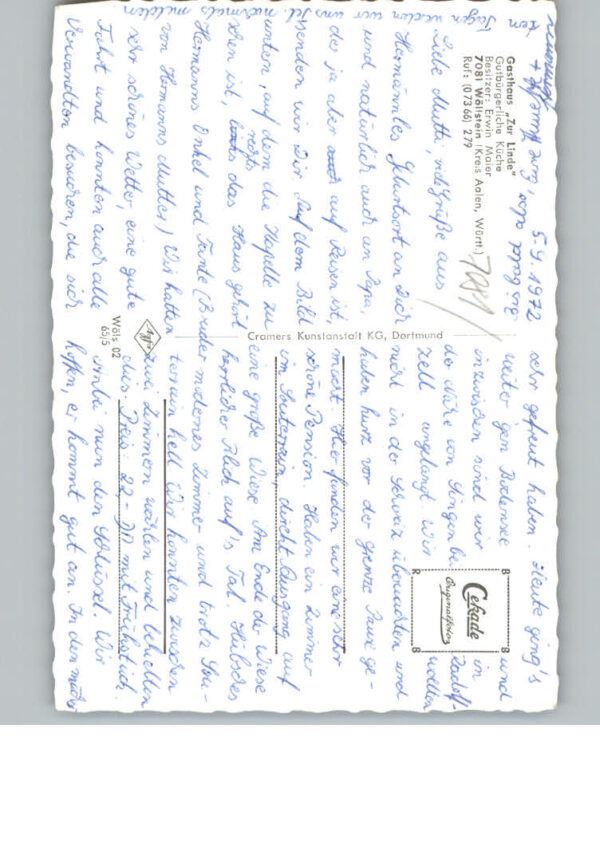 Gasthaus „Zur Linde"
Gutbürgerliche Küche
Besitzer: Erwin Maier
7081 Wöllstein (Kreis Aalen, Württ.)
Ruf: (07366) 279
5.9.1972
7081
Liebe Mutti, viele Grüße aus
Hermännles Geburtsort an Dich
und natürlich auch an Papa,
der ja aber auch auf Reisen ist,
senden wir Dir. Auf dem Bild
unten, auf dem die Kapelle zu
sehen ist rechts das Haus gehört
Hermanns Onkel und Tante (Bruder
von Hermanns Mutter). Wir hatten
sehr schönes Wetter, eine gute
Fahrt und konnten auch alle
Verwandten besuchen, die sich
sehr gefreut haben. Heute ging's
weiter gen Bodensee und
inzwischen sind wir in
der Nähe von Singen bei Radolf-
zell angelangt. Wir wollten
nicht in der Schweiz übernachten und
haben kurz vor der Grenze Pause ge-
macht. Hier fanden wir eine sehr
schöne Pension. Haben ein Zimmer
im Souterrain, direkt Ausgang auf
eine große Wiese. Am Ende der Wiese
herrlicher Blick auf's Tal. Hübsches
modernes Zimmer und trotz Sou-
terrain hell. Wir konnten zwischen
zwei Zimmern wählen und behielten
dies. Preis 22,- DM mit Frühstück.
Anbei nun den Schlüssel. Wir
hoffen, er kommt gut an. In den nächs-
ten Tagen melden wir uns nochmals
Cramers Kunstanstalt KG, Dortmund
Agfa
Wöls 02
65/5
B B
R B
Cekade
Originalfoto